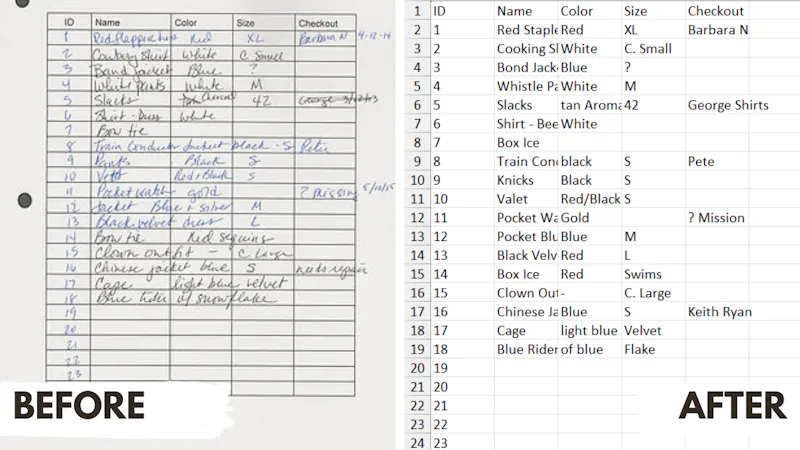 ID Name Color Size Checkout
1 Red flapper dress Red XL Barbara N 9-12-14
2 Cowboy Shirt White C. Small
3 Band jacket Blue ?
4 White pants White M
5 Slacks tan Charcoal 42 George 3/12/13
6 Shirt - Dress White
7 Bow tie
8 Train Conductor Jacket black - S Peter
9 Pants Black S
10 Vest Red & Black S
11 Pocket watch gold ? missing 5/10/15
12 Jacket Blue & silver M
13 Black velvet dress L
14 Bow tie Red sequins
15 Clown outfit - C Large
16 Chinese jacket blue S needs repair
17 Cage light blue velvet
18 Blue tutu w/ snowflake
19
20
21
22
23
BEFORE
1 ID Name Color Size Checkout
2 1 Red Staple Red XL Barbara N
3 2 Cooking Sl White C. Small
4 3 Bond Jack Blue ?
5 4 Whistle Pa White M
6 5 Slacks tan Aroma 42 George Shirts
7 6 Shirt - Bee White
8 7 Box Ice
9 8 Train Conc black S Pete
10 9 Knicks Black S
11 10 Valet Red/Black S
12 11 Pocket Wa Gold ? Mission
13 12 Pocket Blu Blue M
14 13 Black Velv Red L
15 14 Box Ice Red Swims
16 15 Clown Out - C. Large
17 16 Chinese Ja Blue S Keith Ryan
18 17 Cage light blue Velvet
19 18 Blue Rider of blue Flake
20 19
21 20
22 21
23 22
24 23
AFTER